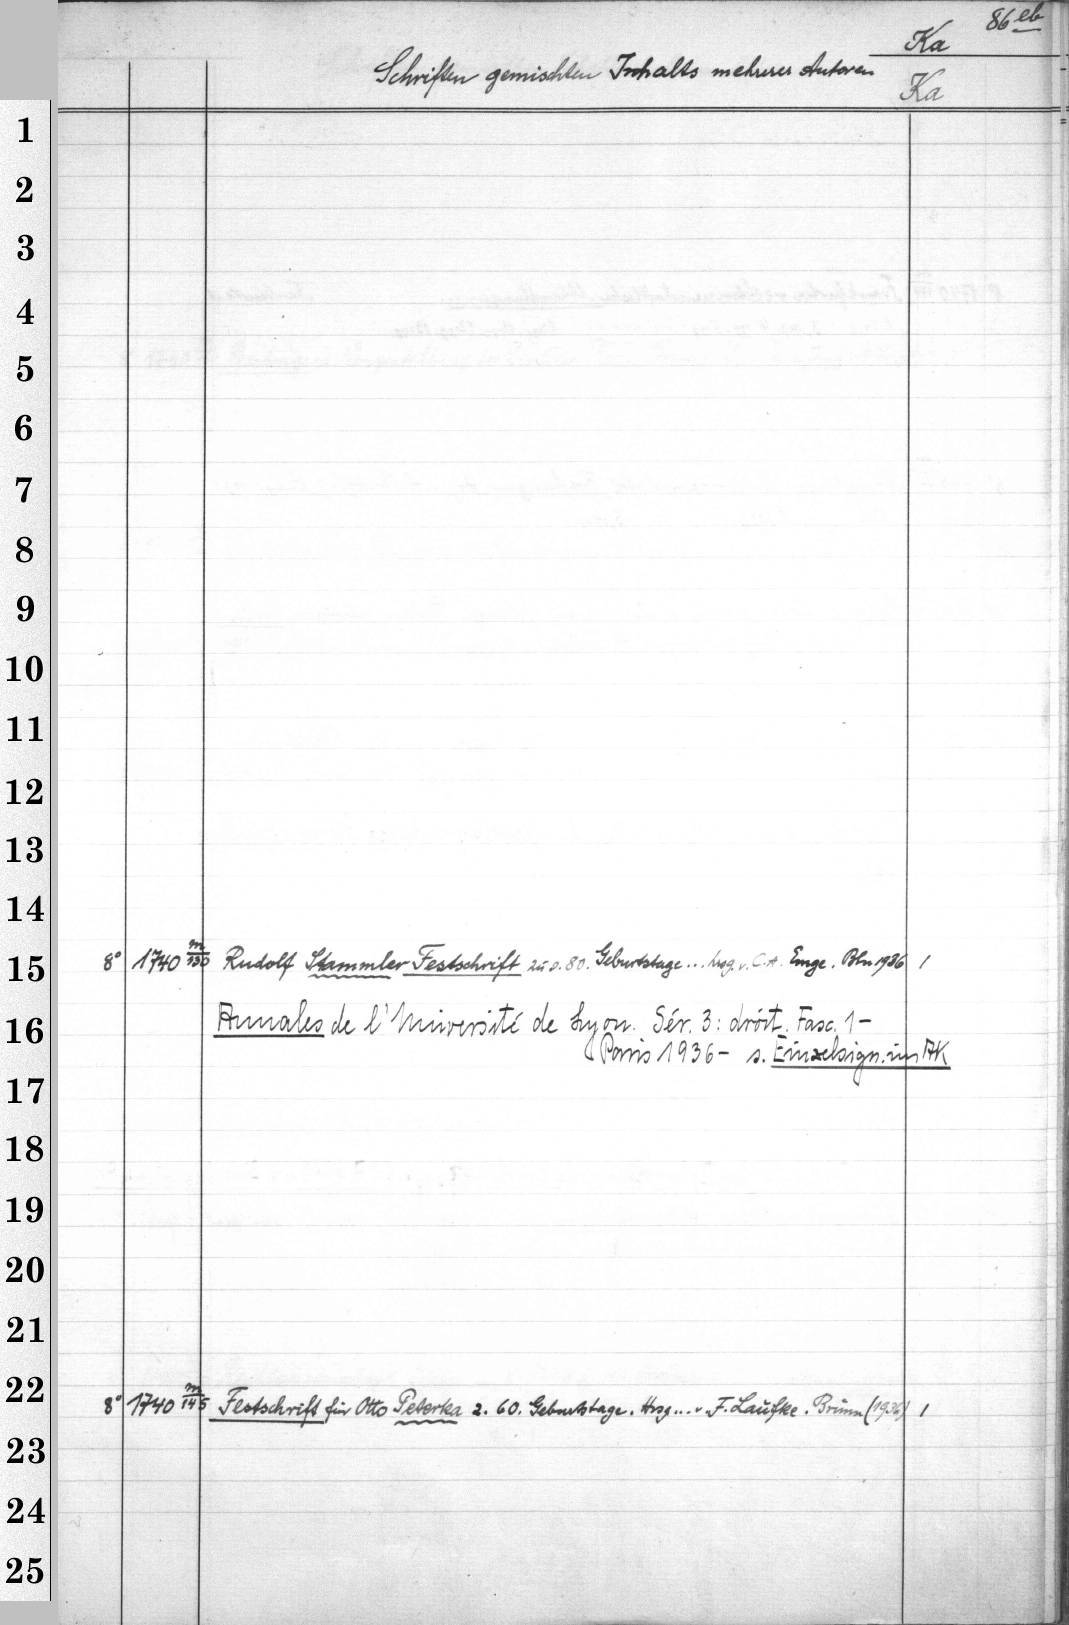 86 eb
Ka
Schriften gemischten Inhalts mehrerer Autoren
Ka
1
2
3
4
5
6
7
8
9
10
11
12
13
14
15 8° 1740 m/130 Rudolf Stammler Festschrift zu s. 80. Geburtstage... hrsg. v. C. A. Emge. Bln 1936 1
16 Annales de l'Université de Lyon. Sér. 3: droit. Fasc. 1-
Paris 1936- s. Einzelsign. im AK
17
18
19
20
21
22 8° 1740 m/145 Festschrift für Otto Peterka z. 60. Geburtstage. Hrsg... v F. Laufke. Brünn (1936) 1
23
24
25